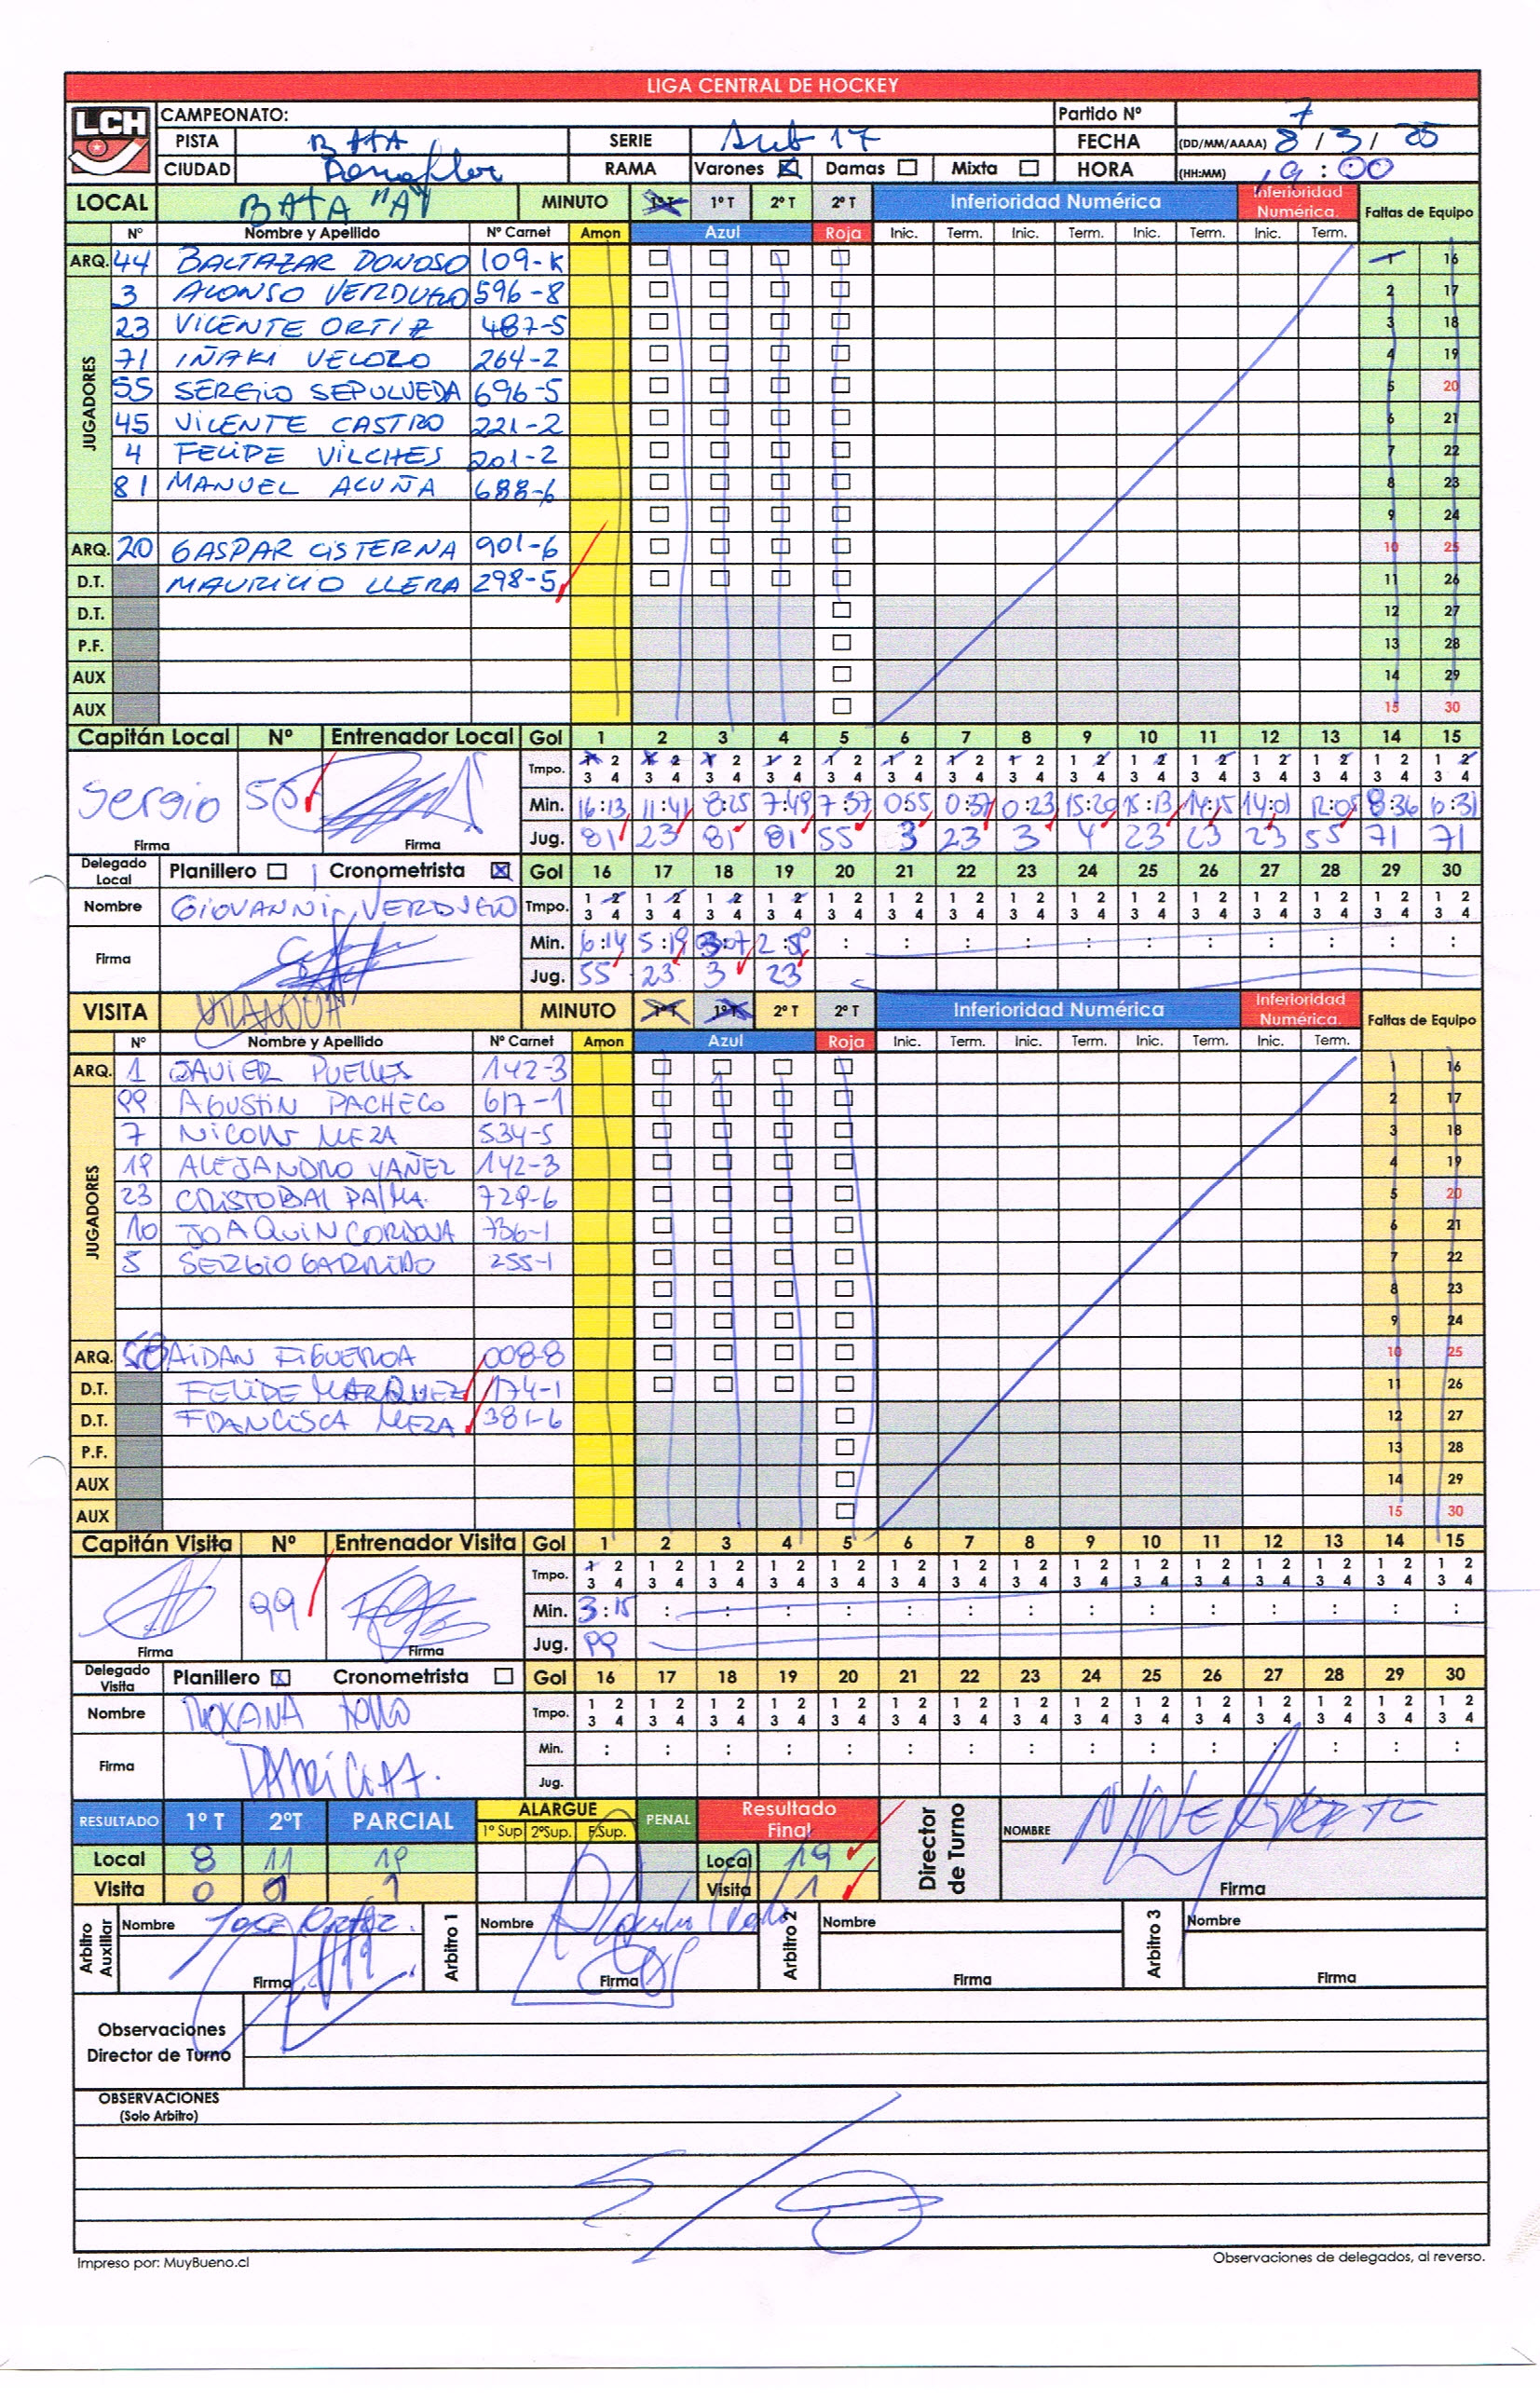 LIGA CENTRAL DE HOCKEY
LCH CAMPEONATO: Partido Nº 7
PISTA BATA SERIE Sub 17 FECHA (DD/MM/AAAA) 8 / 3 / 25
CIUDAD Penaflor RAMA Varones Damas Mixta HORA (HH:MM) 19:00
LOCAL BATA "A" MINUTO 1º T 1º T 2º T 2º T Inferioridad Numérica Inferioridad Numérica. Faltas de Equipo
Nº Nombre y Apellido Nº Carnet Amon Azul Roja Inic. Term. Inic. Term. Inic. Term. Inic. Term.
ARQ. 44 BALTAZAR DONOSO 109-K 1 16
JUGADORES
3 ALONSO VERDUGO 596-8 2 17
23 VICENTE ORTIZ 487-5 3 18
71 IÑAKI VELOZO 264-2 4 19
55 SERGIO SEPULVEDA 696-5 5 20
45 VICENTE CASTRO 221-2 6 21
4 FELIPE VILCHES 201-2 7 22
81 MANUEL ACUÑA 688-6 8 23
9 24
ARQ. 20 GASPAR CISTERNA 901-6 10 25
D.T. MAURICIO LLERA 298-5 11 26
D.T. 12 27
P.F. 13 28
AUX 14 29
AUX 15 30
Capitán Local Nº Entrenador Local Gol 1 2 3 4 5 6 7 8 9 10 11 12 13 14 15
Tmpo. 1 2 1 2 1 2 1 2 1 2 1 2 1 2 1 2 1 2 1 2 1 2 1 2 1 2 1 2 1 2
3 4 3 4 3 4 3 4 3 4 3 4 3 4 3 4 3 4 3 4 3 4 3 4 3 4 3 4 3 4
Sergio 55 Min. 16:13 11:41 8:25 7:49 7:37 0:55 0:37 0:23 15:20 15:13 14:15 14:01 12:05 8:36 6:31
Firma Firma Jug. 81 23 81 81 55 3 23 3 4 23 23 23 55 71 71
Delegado Local Planillero Cronometrista Gol 16 17 18 19 20 21 22 23 24 25 26 27 28 29 30
Nombre GIOVANNI VERDUGO Tmpo. 1 2 1 2 1 2 1 2 1 2 1 2 1 2 1 2 1 2 1 2 1 2 1 2 1 2 1 2 1 2
3 4 3 4 3 4 3 4 3 4 3 4 3 4 3 4 3 4 3 4 3 4 3 4 3 4 3 4 3 4
Firma Min. 6:14 5:19 3:07 : : : : : : : : : : :
Jug. 55 23 3 23
VISITA MINUTO 1º T 1º T 2º T 2º T Inferioridad Numérica Inferioridad Numérica. Faltas de Equipo
Nº Nombre y Apellido Nº Carnet Amon Azul Roja Inic. Term. Inic. Term. Inic. Term. Inic. Term.
ARQ. 1 JAVIER PUELLES 142-3 1 16
JUGADORES
99 AGUSTIN PACHECO 617-1 2 17
7 NICOLAS MEZA 534-5 3 18
19 ALEJANDRO YAÑEZ 142-3 4 19
23 CRISTOBAL PALMA. 729-6 5 20
10 JOAQUIN CORDOVA 736-1 6 21
5 SERGIO GARRIDO 255-1 7 22
8 23
9 24
ARQ. AIDAN FIGUEROA 008-8 10 25
D.T. FELIPE MARQUEZ 174-1 11 26
D.T. FRANCISCA MEZA 381-6 12 27
P.F. 13 28
AUX 14 29
AUX 15 30
Capitán Visita Nº Entrenador Visita Gol 1 2 3 4 5 6 7 8 9 10 11 12 13 14 15
Tmpo. 1 2 1 2 1 2 1 2 1 2 1 2 1 2 1 2 1 2 1 2 1 2 1 2 1 2 1 2 1 2
3 4 3 4 3 4 3 4 3 4 3 4 3 4 3 4 3 4 3 4 3 4 3 4 3 4 3 4 3 4
99 Min. 3:15 : : : : : : : : : : : : : :
Firma Firma Jug. 99
Delegado Visita Planillero Cronometrista Gol 16 17 18 19 20 21 22 23 24 25 26 27 28 29 30
Nombre ROXANA Tmpo. 1 2 1 2 1 2 1 2 1 2 1 2 1 2 1 2 1 2 1 2 1 2 1 2 1 2 1 2 1 2
3 4 3 4 3 4 3 4 3 4 3 4 3 4 3 4 3 4 3 4 3 4 3 4 3 4 3 4 3 4
Firma Min. : : : : : : : : : : : : : : :
Jug.
RESULTADO 1º T 2ºT PARCIAL ALARGUE 1º Sup 2ºSup. F.Sup. PENAL Resultado Final Director de Turno NOMBRE
Local 8 11 19 Local 19
Visita 0 1 Visita 1 Firma
Arbitro Auxiliar Nombre Jose Ortiz. Arbitro 1 Nombre Arbitro 2 Nombre Arbitro 3 Nombre
Firma Firma Firma Firma
Observaciones
Director de Turno
OBSERVACIONES
(Solo Arbitro)
Impreso por: MuyBueno.cl Observaciones de delegados, al reverso.